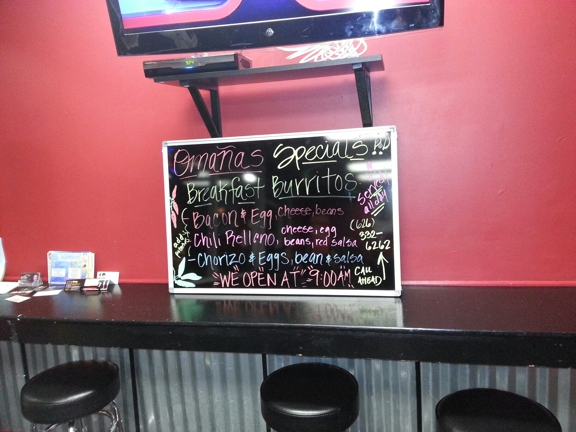 Omañas Specials
Breakfast Burritos
Bacon & Egg, cheese, beans
Chili Relleno, cheese, egg
beans, red salsa
Chorizo & Eggs, bean & salsa
"WE OPEN AT" 9:00AM!
Served
all day
(626)
332-
6262
CALL
AHEAD
add